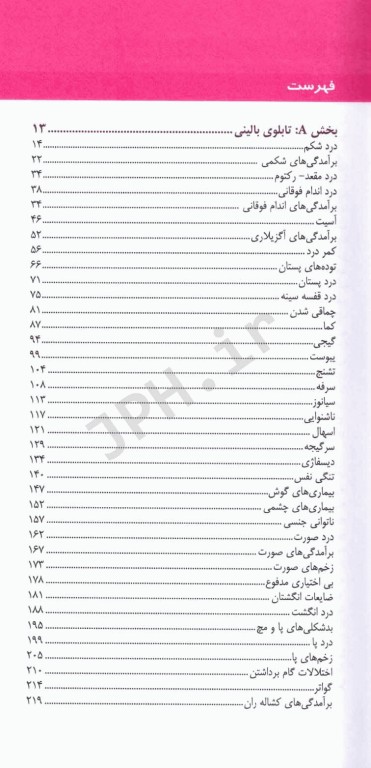 فهرست
بخش A: تابلوی بالینی ۱۳
درد شکم ۱۴
برآمدگی‌های شکمی ۲۲
درد مقعد- رکتوم ۳۴
درد اندام فوقانی ۳۸
برآمدگی‌های اندام فوقانی ۳۴
آسیت ۴۶
برآمدگی‌های آگزیلاری ۵۲
کمر درد ۵۶
توده‌های پستان ۶۶
درد پستان ۷۱
درد قفسه سینه ۷۵
چماقی شدن ۸۱
کما ۸۷
گیجی ۹۴
یبوست ۹۹
تشنج ۱۰۴
سرفه ۱۰۸
سیانوز ۱۱۳
ناشنوایی ۱۱۷
اسهال ۱۲۱
سرگیجه ۱۲۹
دیسفاژی ۱۳۴
تنگی نفس ۱۴۰
بیماری‌های گوش ۱۴۷
بیماری‌های چشمی ۱۵۲
ناتوانی جنسی ۱۵۷
درد صورت ۱۶۲
برآمدگی‌های صورت ۱۶۷
زخم‌های صورت ۱۷۳
بی اختیاری مدفوع ۱۷۸
ضایعات انگشتان ۱۸۱
درد انگشت ۱۸۸
بدشکلی‌های پا و مچ ۱۹۵
درد پا ۱۹۹
زخم‌های پا ۲۰۵
اختلالات گام برداشتن ۲۱۰
گواتر ۲۱۴
برآمدگی‌های کشاله ران ۲۱۹
JPH.ir